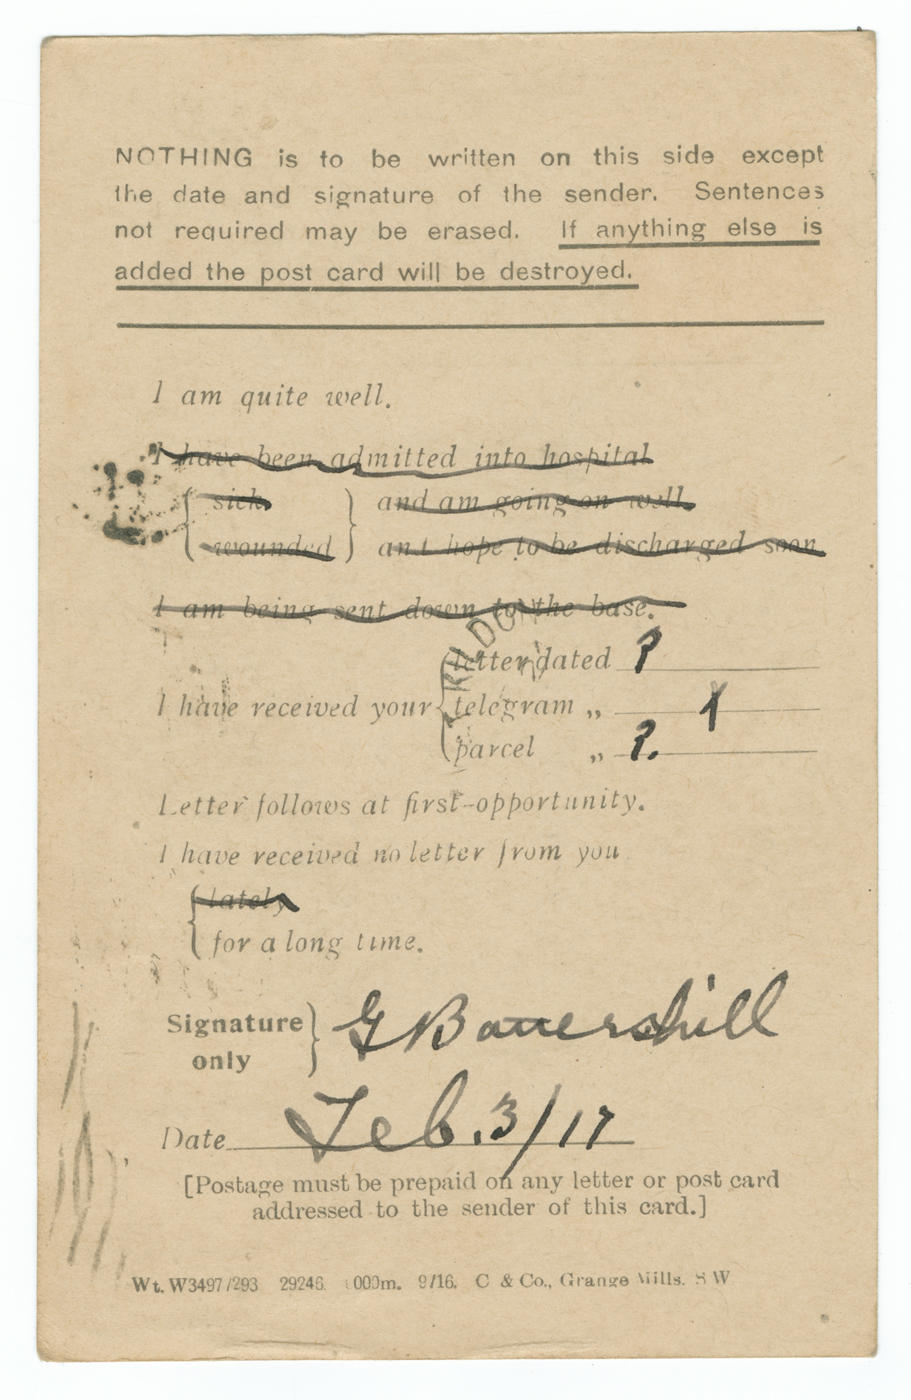 NOTHING is to be written on this side except
the date and signature of the sender. Sentences
not required may be erased. If anything else is
added the post card will be destroyed.
I am quite well.
I have been admitted into hospital
sick and am going on well.
wounded and hope to be discharged soon.
I am being sent down to the base.
letter dated ?
I have received your telegram „
parcel „ ?.
Letter follows at first opportunity.
I have received no letter from you
lately
for a long time.
Signature
only
G
Date Feb. 3/17
[Postage must be prepaid on any letter or post card
addressed to the sender of this card.]
Wt. W3497/293 29246. 000m. 9/16. C & Co., Grange Mills. S W